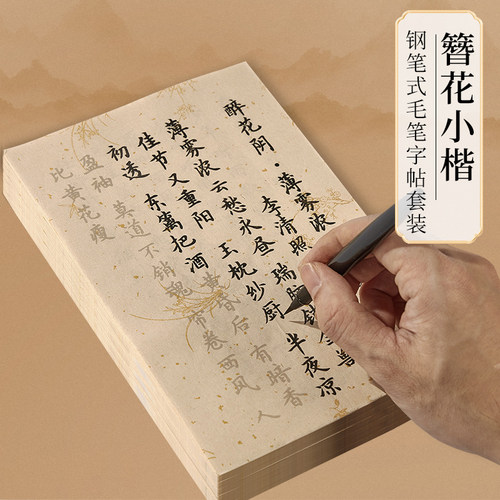 簪花小楷
钢笔式毛笔字帖套装
醉花阴·薄雾浓
李清照
薄雾浓云愁永昼 瑞脑销金兽
佳节又重阳 玉枕纱厨 半夜凉
初透 东篱把酒 黄昏后 有暗香
盈袖 莫道不销魂 帘卷西风 人
比黄花瘦